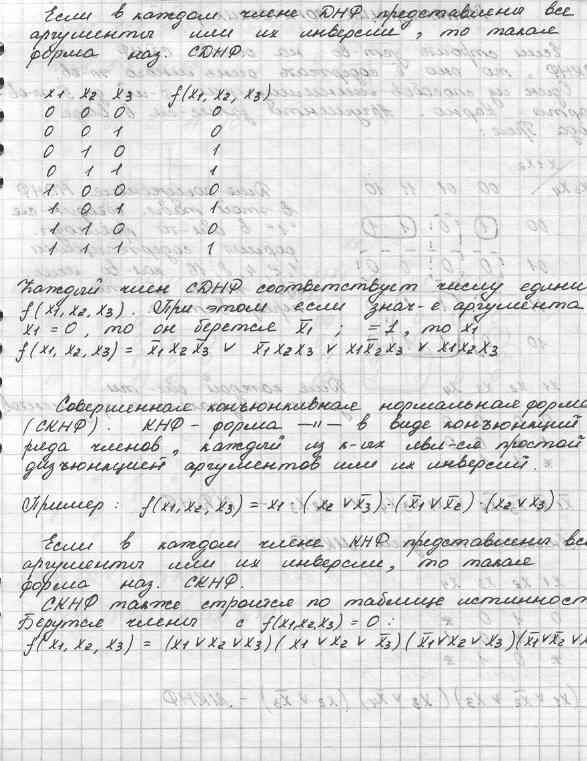 Если в каждом члене ДНФ представлены все
аргументы или их инверсии, то такая
форма наз. СДНФ.
x1 x2 x3 f(x1, x2, x3)
0 0 0 0
0 0 1 0
0 1 0 1
0 1 1 1
1 0 0 0
1 0 1 1
1 1 0 0
1 1 1 1
Каждый член СДНФ соответствует числу едини
f(x1, x2, x3). При этом если знач-е аргумента
x1 = 0, то он берется x̅1 ; =1, то x1
f(x1, x2, x3) = x̅1 x2 x̅3 ∨ x̅1 x2 x3 ∨ x1 x̅2 x3 ∨ x1 x2 x3
Совершенная конъюнктивная нормальная форма
(СКНФ). КНФ - форма —"— в виде конъюнкций
ряда членов, каждый из к-ых явл-ся простой
дизъюнкцией аргументов или их инверсий.
Пример: f(x1, x2, x3) = x1 · (x2 ∨ x̅3) · (x̅1 ∨ x̅2) · (x2 ∨ x3)
Если в каждом члене КНФ представлены все
аргументы или их инверсии, то такая
форма наз. СКНФ.
СКНФ также строится по таблице истинност
Берутся члены с f(x1,x2,x3) = 0 :
f(x1, x2, x3) = (x1 ∨ x2 ∨ x3) (x1 ∨ x2 ∨ x̅3) (x̅1 ∨ x2 ∨ x3) (x̅1 ∨ x̅2 ∨ x